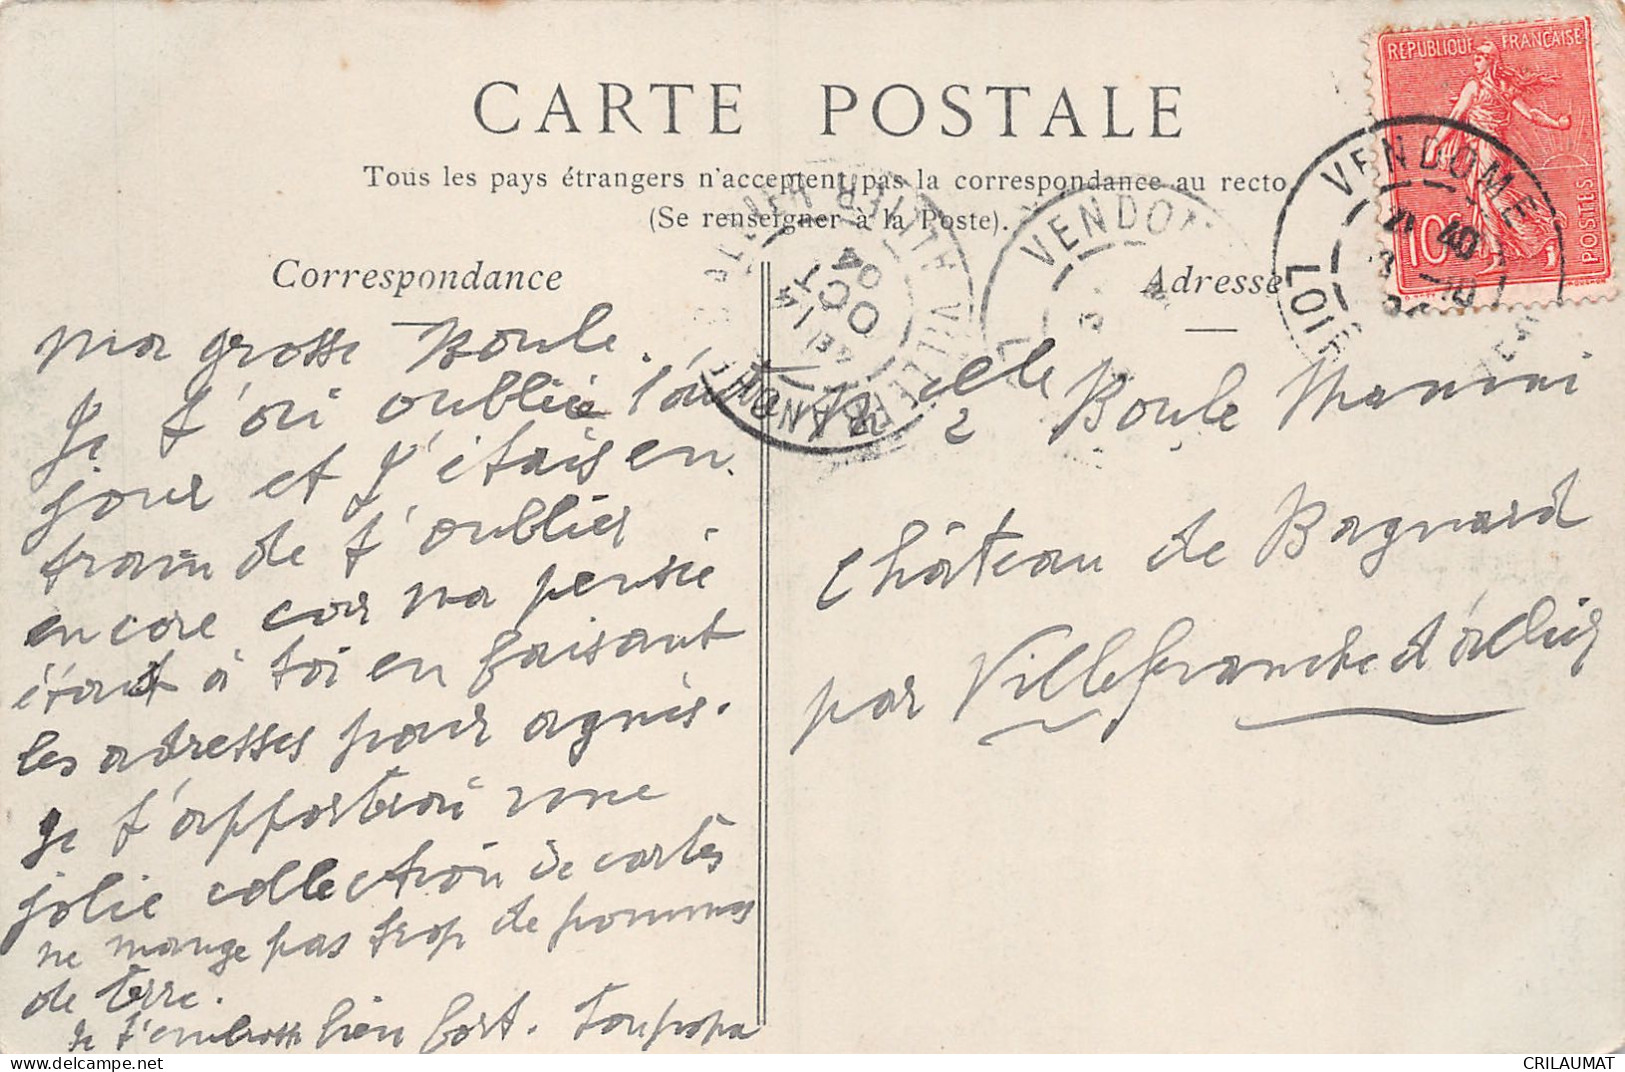 CARTE POSTALE
Tous les pays étrangers n'acceptent pas la correspondance au recto
(Se renseigner à la Poste).
Correspondance
Adresse
REPUBLIQUE FRANÇAISE
10c
POSTES
VENDOME
LOIR
VENDO
14 OCT 04
VILLEFRANCHE
ALLIER
ma grosse Boule.
Je t'ai oubliée l'autre
jour et j'étais en
train de t'oublier
encore car ma pensée
était à toi en faisant
les adresses pour agnès.
Je t'apporterai une
jolie collection de cartes
ne mange pas trop de pommes
de terre.
Je t'embrasse bien fort. Ton papa
Melle Boule
Château de Bagnard
par Villefranche d'allier
CRILAUMAT